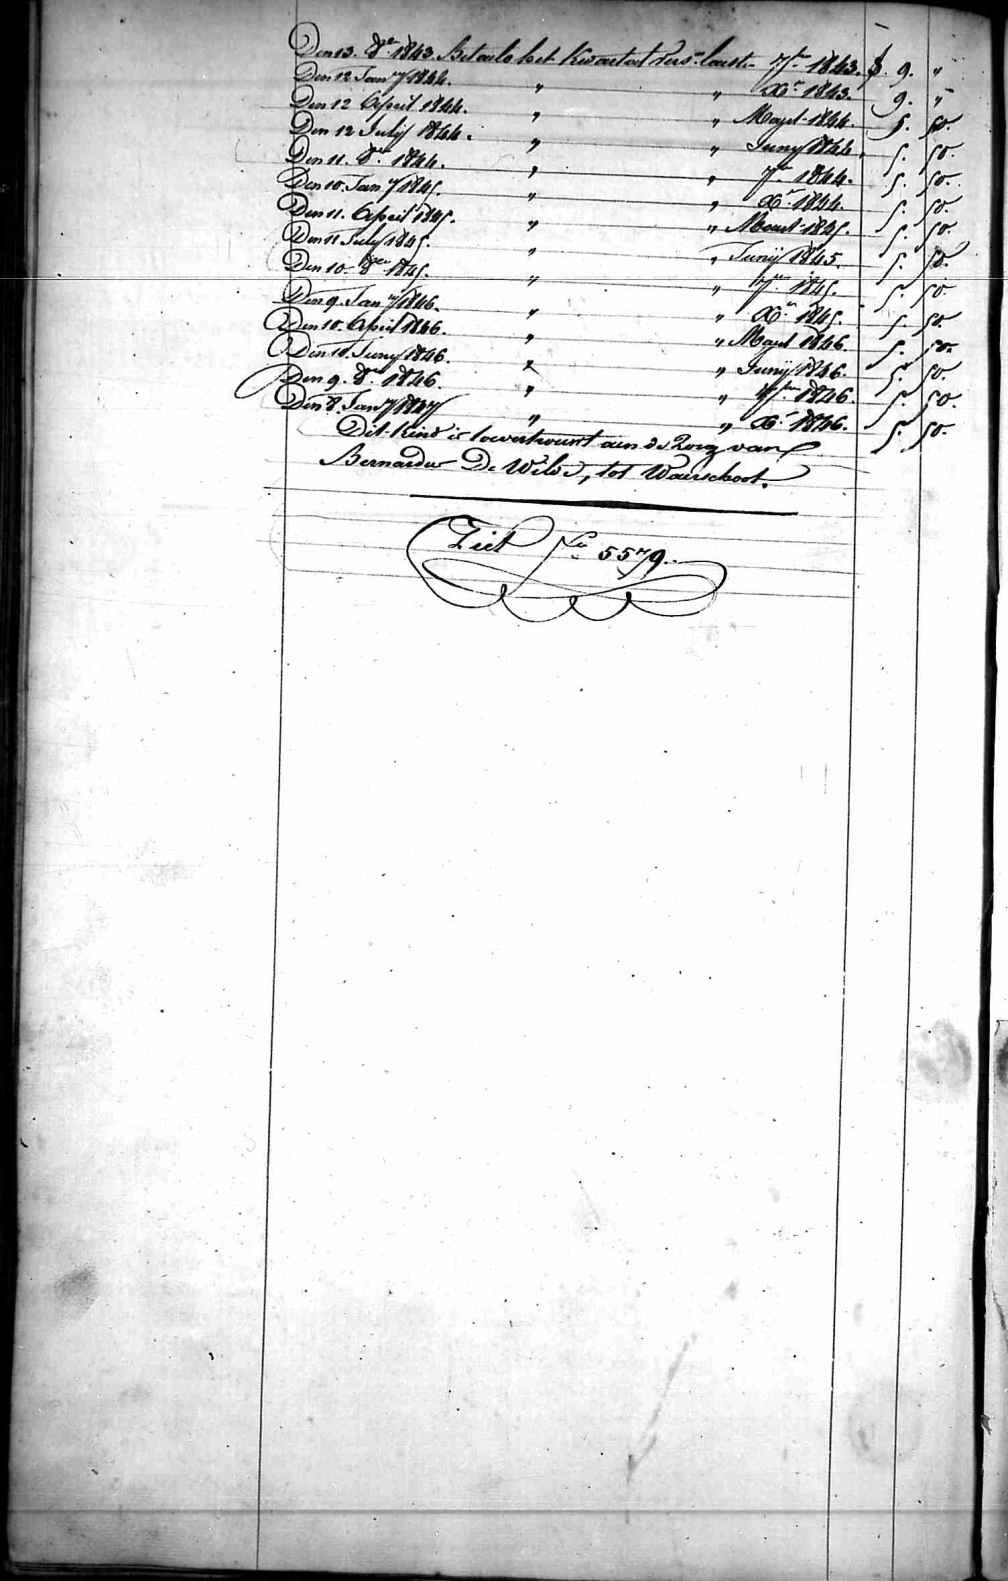 Den 13. 8re 1843. Betaele het kwartael vers. laest 7re 1843. f. 9. "
Den 12 Jany 1844. " " Xr 1843. 9. "
Den 12 April 1844. " " Maert 1844. 5. 50.
Den 12 July 1844. " " Juny 1844. 5. 50.
Den 11. 8re 1844. " " 7re 1844. 5. 50.
Den 10. Jany 1845. " " Xr 1844. 5. 50.
Den 11. April 1845. " " Maert 1845. 5. 50.
Den 11 July 1845. " " Junij 1845. 5. 50.
Den 10 8re 1845. " " 7re 1845. 5. 50.
Den 9. Jany 1846. " " Xr 1845. 5. 50.
Den 10. April 1846. " " Maert 1846. 5. 50.
Den 10. Juny 1846. " " Junij 1846. 5. 50.
Den 9. 8re 1846. " " 7bre 1846. 5. 50.
Den 8. Jany 1847 " " Xr 1846. 5. 50.
Dit kind is toevertrouwt aen de Zorg van
Bernardus De Wilde, tot Waerschoot.
Ziet No 5579.